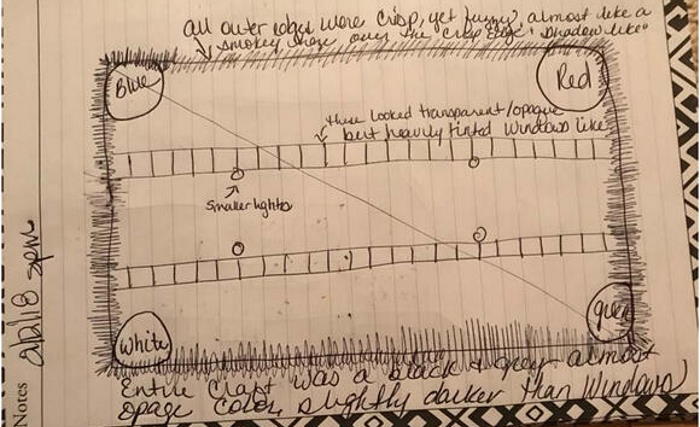 all outer edges were crisp, yet fuzzy, almost like a
smokey haze over the "crisp edge" shadow like"
Blue
Red
these looked transparent/opaque
but heavily tinted windows like
Smaller lights
White
green
Entire craft was a black & grey almost
opage color, slightly darker than windows
Notes
5pm